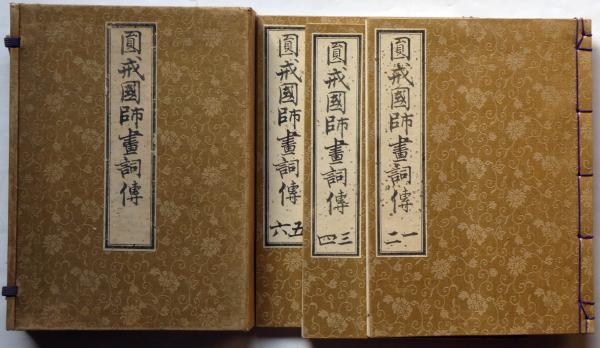 圓戒國師畫詞傳
圓戒國師畫詞傳
六五
圓戒國師畫詞傳
四三
圓戒國師畫詞傳
二一